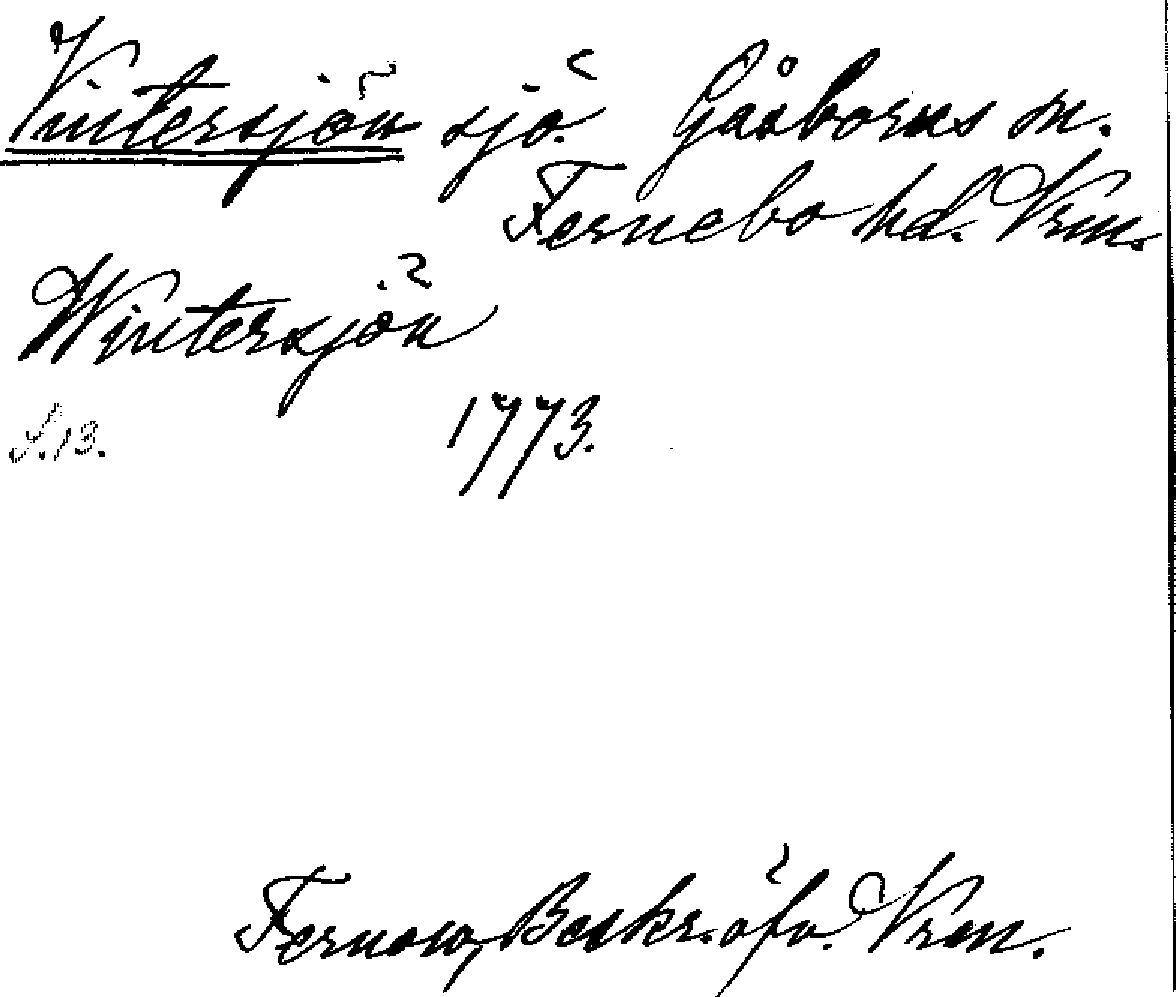 Vintersjön sjö. Gåsborns sn.
Fernebo hd. Vrm.
Wintersjön
S. 13. 1773.
Fernow, Beskr. öfv. Vrm.